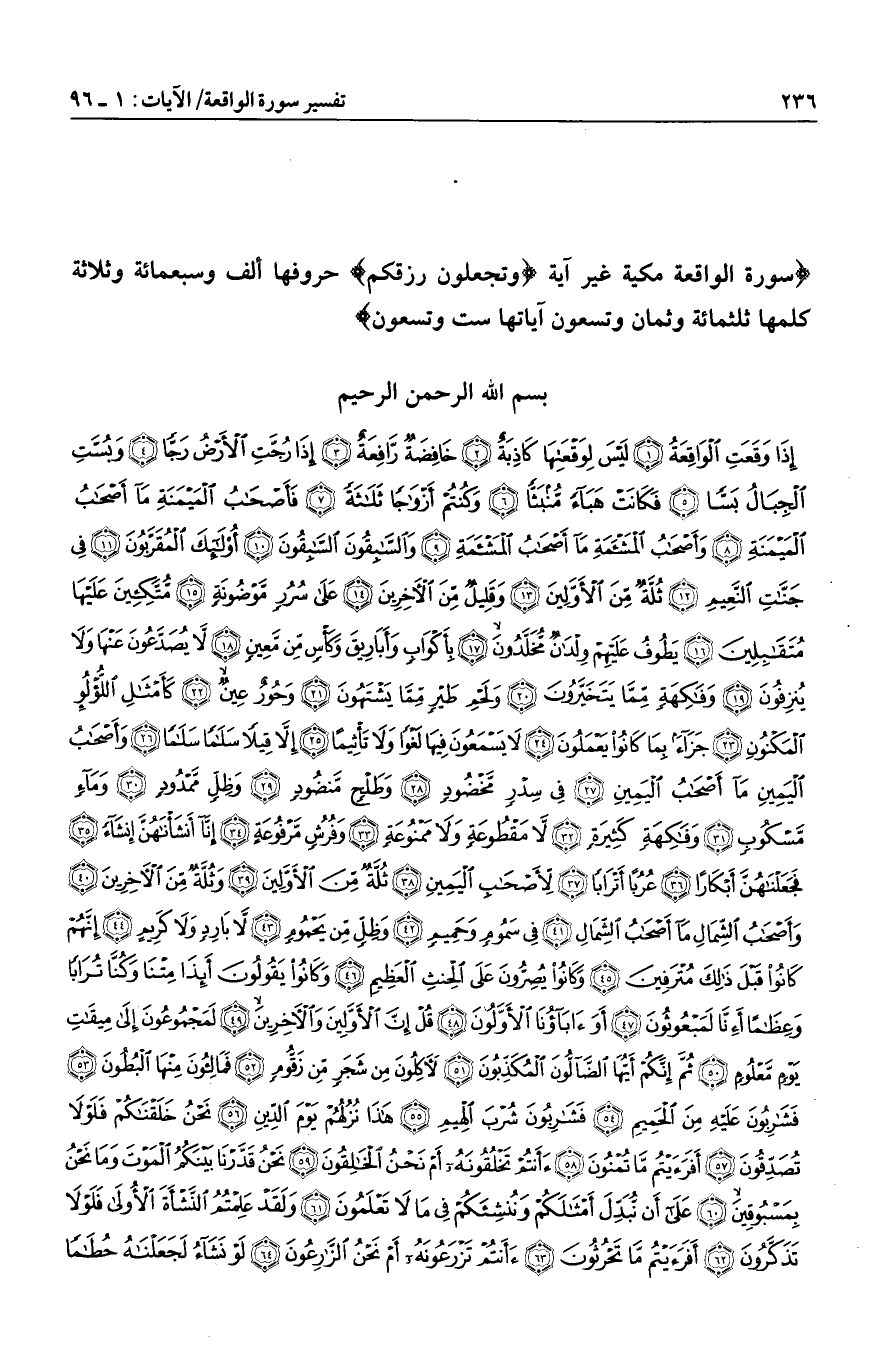 ٢٣٦ تفسير سورة الواقعة/ الآيات: ١ ـ ٩٦
﴿سورة الواقعة مكية غير آية ﴿وتجعلون رزقكم﴾ حروفها ألف وسبعمائة وثلاثة
كلمها ثلثمائة وثمان وتسعون آياتها ست وتسعون﴾
بسم الله الرحمن الرحيم
إِذَا وَقَعَتِ ٱلْوَاقِعَةُ ﴿١﴾ لَيْسَ لِوَقْعَتِهَا كَاذِبَةٌ ﴿٢﴾ خَافِضَةٌ رَّافِعَةٌ ﴿٣﴾ إِذَا رُجَّتِ ٱلْأَرْضُ رَجًّا ﴿٤﴾ وَبُسَّتِ
ٱلْجِبَالُ بَسًّا ﴿٥﴾ فَكَانَتْ هَبَآءً مُّنۢبَثًّا ﴿٦﴾ وَكُنتُمْ أَزْوَٰجًا ثَلَٰثَةً ﴿٧﴾ فَأَصْحَٰبُ ٱلْمَيْمَنَةِ مَآ أَصْحَٰبُ
ٱلْمَيْمَنَةِ ﴿٨﴾ وَأَصْحَٰبُ ٱلْمَشْـَٔمَةِ مَآ أَصْحَٰبُ ٱلْمَشْـَٔمَةِ ﴿٩﴾ وَٱلسَّٰبِقُونَ ٱلسَّٰبِقُونَ ﴿١٠﴾ أُو۟لَٰٓئِكَ ٱلْمُقَرَّبُونَ ﴿١١﴾ فِى
جَنَّٰتِ ٱلنَّعِيمِ ﴿١٢﴾ ثُلَّةٌ مِّنَ ٱلْأَوَّلِينَ ﴿١٣﴾ وَقَلِيلٌ مِّنَ ٱلْءَاخِرِينَ ﴿١٤﴾ عَلَىٰ سُرُرٍ مَّوْضُونَةٍ ﴿١٥﴾ مُّتَّكِـِٔينَ عَلَيْهَا
مُتَقَٰبِلِينَ ﴿١٦﴾ يَطُوفُ عَلَيْهِمْ وِلْدَٰنٌ مُّخَلَّدُونَ ﴿١٧﴾ بِأَكْوَابٍ وَأَبَارِيقَ وَكَأْسٍ مِّن مَّعِينٍ ﴿١٨﴾ لَّا يُصَدَّعُونَ عَنْهَا وَلَا
يُنزِفُونَ ﴿١٩﴾ وَفَٰكِهَةٍ مِّمَّا يَتَخَيَّرُونَ ﴿٢٠﴾ وَلَحْمِ طَيْرٍ مِّمَّا يَشْتَهُونَ ﴿٢١﴾ وَحُورٌ عِينٌ ﴿٢٢﴾ كَأَمْثَٰلِ ٱللُّؤْلُؤِ
ٱلْمَكْنُونِ ﴿٢٣﴾ جَزَآءًۢ بِمَا كَانُوا۟ يَعْمَلُونَ ﴿٢٤﴾ لَا يَسْمَعُونَ فِيهَا لَغْوًا وَلَا تَأْثِيمًا ﴿٢٥﴾ إِلَّا قِيلًا سَلَٰمًا سَلَٰمًا ﴿٢٦﴾ وَأَصْحَٰبُ
ٱلْيَمِينِ مَآ أَصْحَٰبُ ٱلْيَمِينِ ﴿٢٧﴾ فِى سِدْرٍ مَّخْضُودٍ ﴿٢٨﴾ وَطَلْحٍ مَّنضُودٍ ﴿٢٩﴾ وَظِلٍّ مَّمْدُودٍ ﴿٣٠﴾ وَمَآءٍ
مَّسْكُوبٍ ﴿٣١﴾ وَفَٰكِهَةٍ كَثِيرَةٍ ﴿٣٢﴾ لَّا مَقْطُوعَةٍ وَلَا مَمْنُوعَةٍ ﴿٣٣﴾ وَفُرُشٍ مَّرْفُوعَةٍ ﴿٣٤﴾ إِنَّآ أَنشَأْنَٰهُنَّ إِنشَآءً ﴿٣٥﴾
فَجَعَلْنَٰهُنَّ أَبْكَارًا ﴿٣٦﴾ عُرُبًا أَتْرَابًا ﴿٣٧﴾ لِّأَصْحَٰبِ ٱلْيَمِينِ ﴿٣٨﴾ ثُلَّةٌ مِّنَ ٱلْأَوَّلِينَ ﴿٣٩﴾ وَثُلَّةٌ مِّنَ ٱلْءَاخِرِينَ ﴿٤٠﴾
وَأَصْحَٰبُ ٱلشِّمَالِ مَآ أَصْحَٰبُ ٱلشِّمَالِ ﴿٤١﴾ فِى سَمُومٍ وَحَمِيمٍ ﴿٤٢﴾ وَظِلٍّ مِّن يَحْمُومٍ ﴿٤٣﴾ لَّا بَارِدٍ وَلَا كَرِيمٍ ﴿٤٤﴾ إِنَّهُمْ
كَانُوا۟ قَبْلَ ذَٰلِكَ مُتْرَفِينَ ﴿٤٥﴾ وَكَانُوا۟ يُصِرُّونَ عَلَى ٱلْحِنثِ ٱلْعَظِيمِ ﴿٤٦﴾ وَكَانُوا۟ يَقُولُونَ أَئِذَا مِتْنَا وَكُنَّا تُرَابًا
وَعِظَٰمًا أَءِنَّا لَمَبْعُوثُونَ ﴿٤٧﴾ أَوَ ءَابَآؤُنَا ٱلْأَوَّلُونَ ﴿٤٨﴾ قُلْ إِنَّ ٱلْأَوَّلِينَ وَٱلْءَاخِرِينَ ﴿٤٩﴾ لَمَجْمُوعُونَ إِلَىٰ مِيقَٰتِ
يَوْمٍ مَّعْلُومٍ ﴿٥٠﴾ ثُمَّ إِنَّكُمْ أَيُّهَا ٱلضَّآلُّونَ ٱلْمُكَذِّبُونَ ﴿٥١﴾ لَءَاكِلُونَ مِن شَجَرٍ مِّن زَقُّومٍ ﴿٥٢﴾ فَمَالِـُٔونَ مِنْهَا ٱلْبُطُونَ ﴿٥٣﴾
فَشَٰرِبُونَ عَلَيْهِ مِنَ ٱلْحَمِيمِ ﴿٥٤﴾ فَشَٰرِبُونَ شُرْبَ ٱلْهِيمِ ﴿٥٥﴾ هَٰذَا نُزُلُهُمْ يَوْمَ ٱلدِّينِ ﴿٥٦﴾ نَحْنُ خَلَقْنَٰكُمْ فَلَوْلَا
تُصَدِّقُونَ ﴿٥٧﴾ أَفَرَءَيْتُم مَّا تُمْنُونَ ﴿٥٨﴾ ءَأَنتُمْ تَخْلُقُونَهُۥٓ أَمْ نَحْنُ ٱلْخَٰلِقُونَ ﴿٥٩﴾ نَحْنُ قَدَّرْنَا بَيْنَكُمُ ٱلْمَوْتَ وَمَا نَحْنُ
بِمَسْبُوقِينَ ﴿٦٠﴾ عَلَىٰٓ أَن نُّبَدِّلَ أَمْثَٰلَكُمْ وَنُنشِئَكُمْ فِى مَا لَا تَعْلَمُونَ ﴿٦١﴾ وَلَقَدْ عَلِمْتُمُ ٱلنَّشْأَةَ ٱلْأُولَىٰ فَلَوْلَا
تَذَكَّرُونَ ﴿٦٢﴾ أَفَرَءَيْتُم مَّا تَحْرُثُونَ ﴿٦٣﴾ ءَأَنتُمْ تَزْرَعُونَهُۥٓ أَمْ نَحْنُ ٱلزَّٰرِعُونَ ﴿٦٤﴾ لَوْ نَشَآءُ لَجَعَلْنَٰهُ حُطَٰمًا